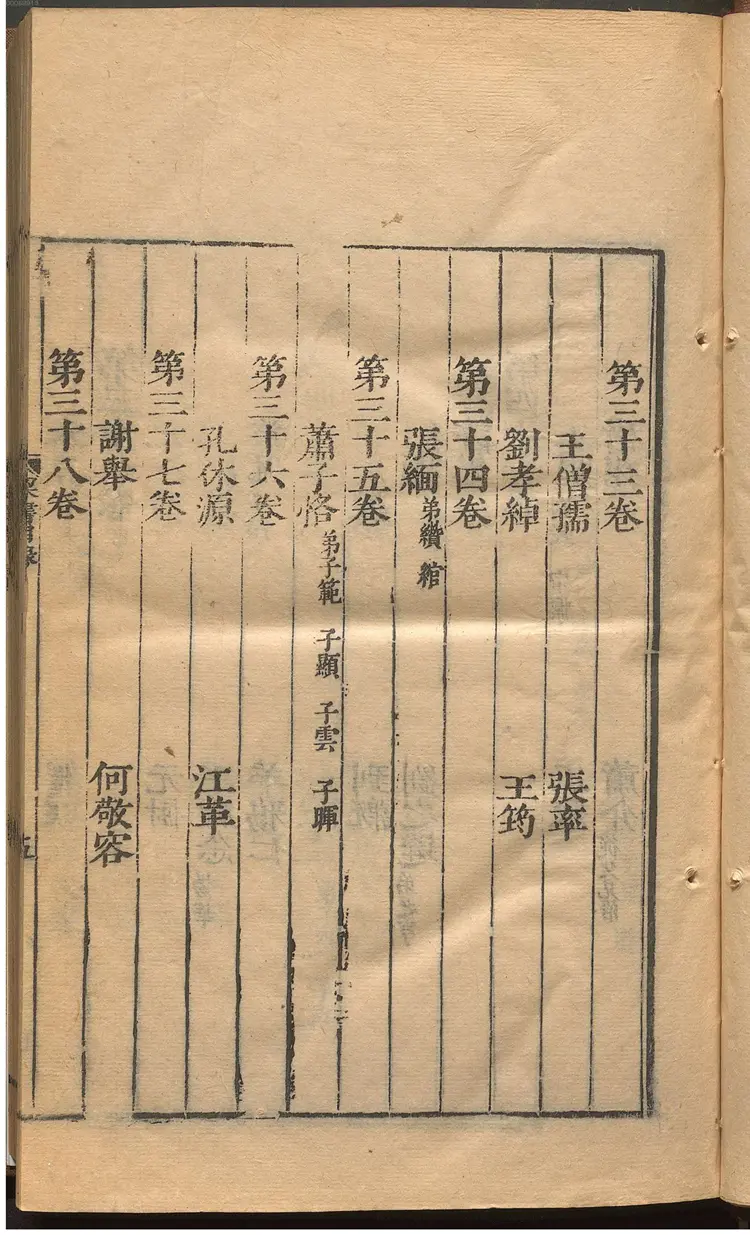 第三十三卷
王僧孺 張率
劉孝綽 王筠
第三十四卷
張緬 弟纘 綰
第三十五卷
蕭子恪 弟子範 子顯 子雲 子暉
第三十六卷
孔休源 江革
第三十七卷
謝舉 何敬容
第三十八卷
梁書目錄 五